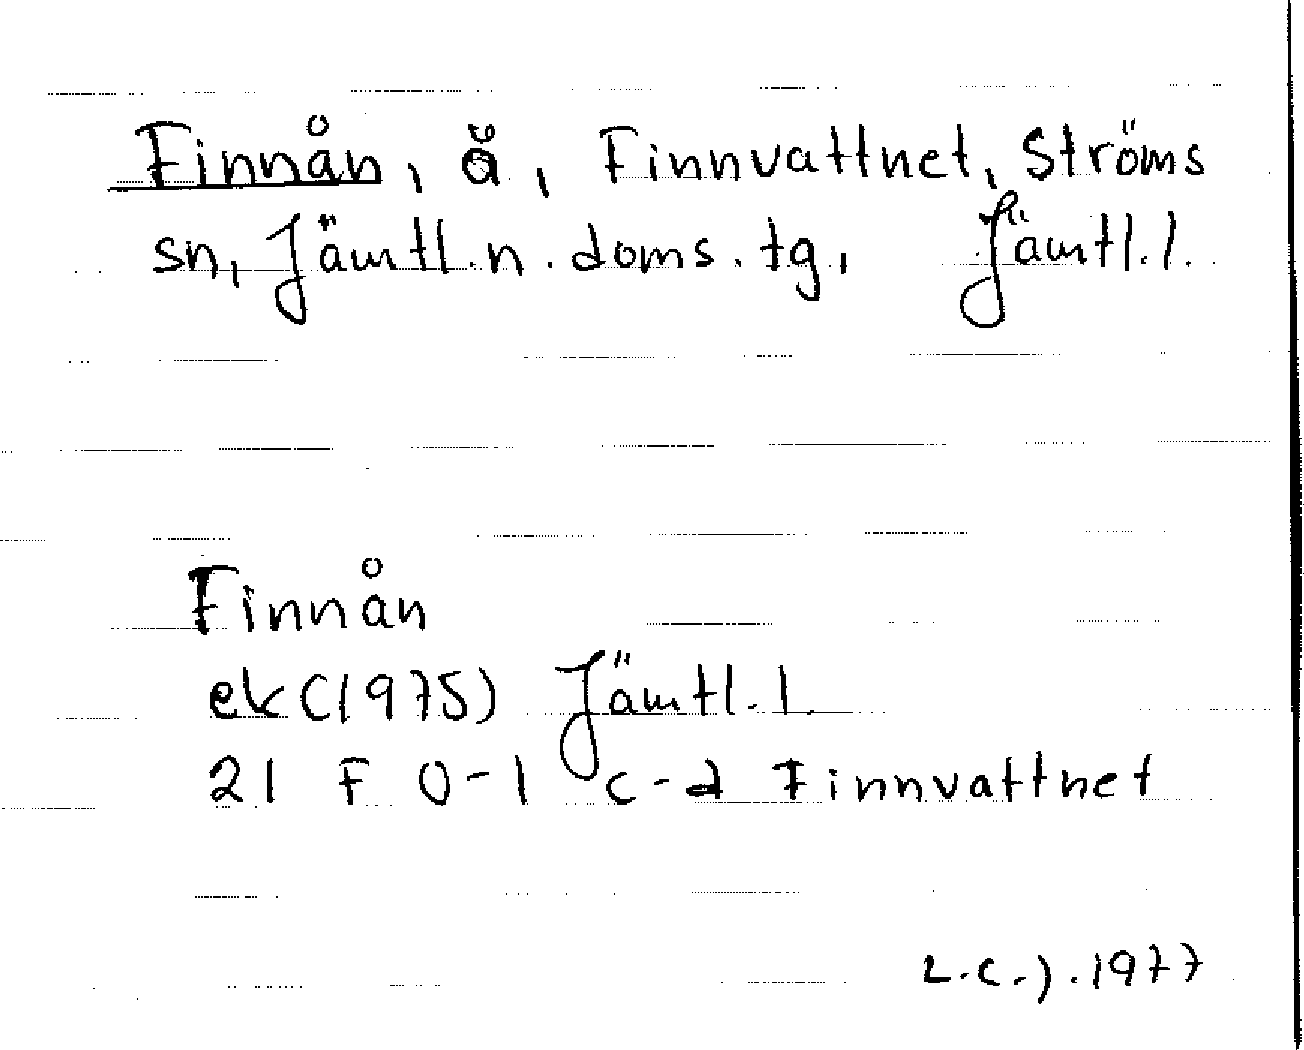 Finnån, å, Finnvattnet, Ströms
sn, Jämtl.n.doms.tg, Jämtl.l.
Finnån
ek(1975) Jämtl.l.
21 F 0-1 c-d Finnvattnet
L.C.J.1977